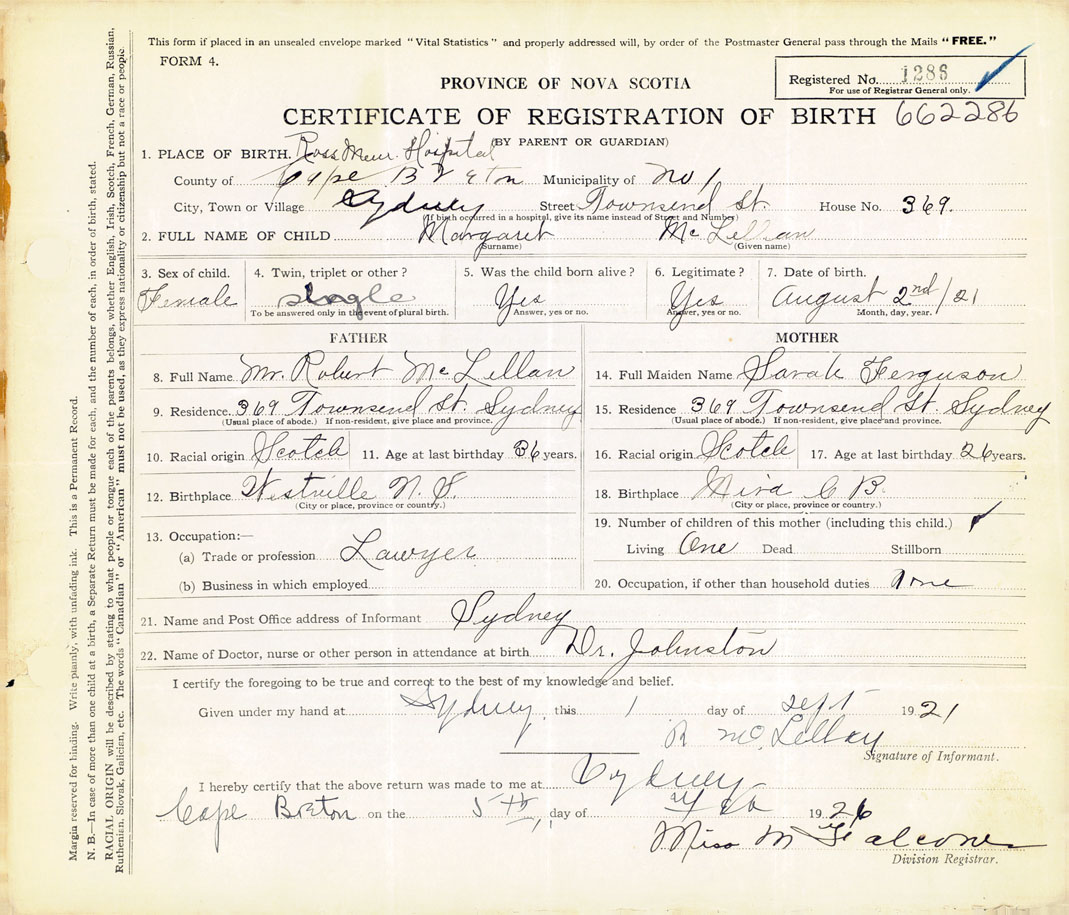 This form if placed in an unsealed envelope marked "Vital Statistics" and properly addressed will, by order of the Postmaster General pass through the Mails "FREE."
FORM 4.
Registered No. 1286
For use of Registrar General only.
PROVINCE OF NOVA SCOTIA
CERTIFICATE OF REGISTRATION OF BIRTH 662286
(BY PARENT OR GUARDIAN)
1. PLACE OF BIRTH. Ross Mem. Hospital
County of Cape Breton Municipality of No 1
City, Town or Village Sydney Street Townsend St. House No. 369.
(If birth occurred in a hospital, give its name instead of Street and Number)
2. FULL NAME OF CHILD Margaret McLellan
(Surname) (Given name)
3. Sex of child. 4. Twin, triplet or other? 5. Was the child born alive? 6. Legitimate? 7. Date of birth.
Female single Yes Yes August 2nd/21
To be answered only in the event of plural birth. Answer, yes or no. Answer, yes or no. Month, day, year.
FATHER
8. Full Name Mr. Robert McLellan
9. Residence 369 Townsend St. Sydney
(Usual place of abode.) If non-resident, give place and province.
10. Racial origin Scotch 11. Age at last birthday 36 years.
12. Birthplace Westville N. S.
(City or place, province or country.)
13. Occupation:—
(a) Trade or profession Lawyer
(b) Business in which employed
MOTHER
14. Full Maiden Name Sarah Ferguson
15. Residence 369 Townsend St. Sydney
(Usual place of abode.) If non-resident, give place and province.
16. Racial origin Scotch 17. Age at last birthday 26 years.
18. Birthplace Mira C B.
(City or place, province or country.)
19. Number of children of this mother (including this child.)
Living One Dead Stillborn
20. Occupation, if other than household duties None
21. Name and Post Office address of Informant Sydney
22. Name of Doctor, nurse or other person in attendance at birth Dr. Johnston
I certify the foregoing to be true and correct to the best of my knowledge and belief.
Given under my hand at Sydney this 1 day of Sept 1921
R McLellan
Signature of Informant.
I hereby certify that the above return was made to me at Sydney
Cape Breton on the 5th day of 1926
Miss M Falconer
Division Registrar.
Margin reserved for binding. Write plainly, with unfading ink. This is a Permanent Record.
N. B.—In case of more than one child at a birth, a Separate Return must be made for each, and the number of each, in order of birth, stated.
RACIAL ORIGIN will be described by stating to what people or tongue each of the parents belongs, whether English, Irish, Scotch, French, German, Russian,
Ruthenian, Slovak, Galician, etc. The words "Canadian" or "American" must not be used, as they express nationality or citizenship but not a race or people.